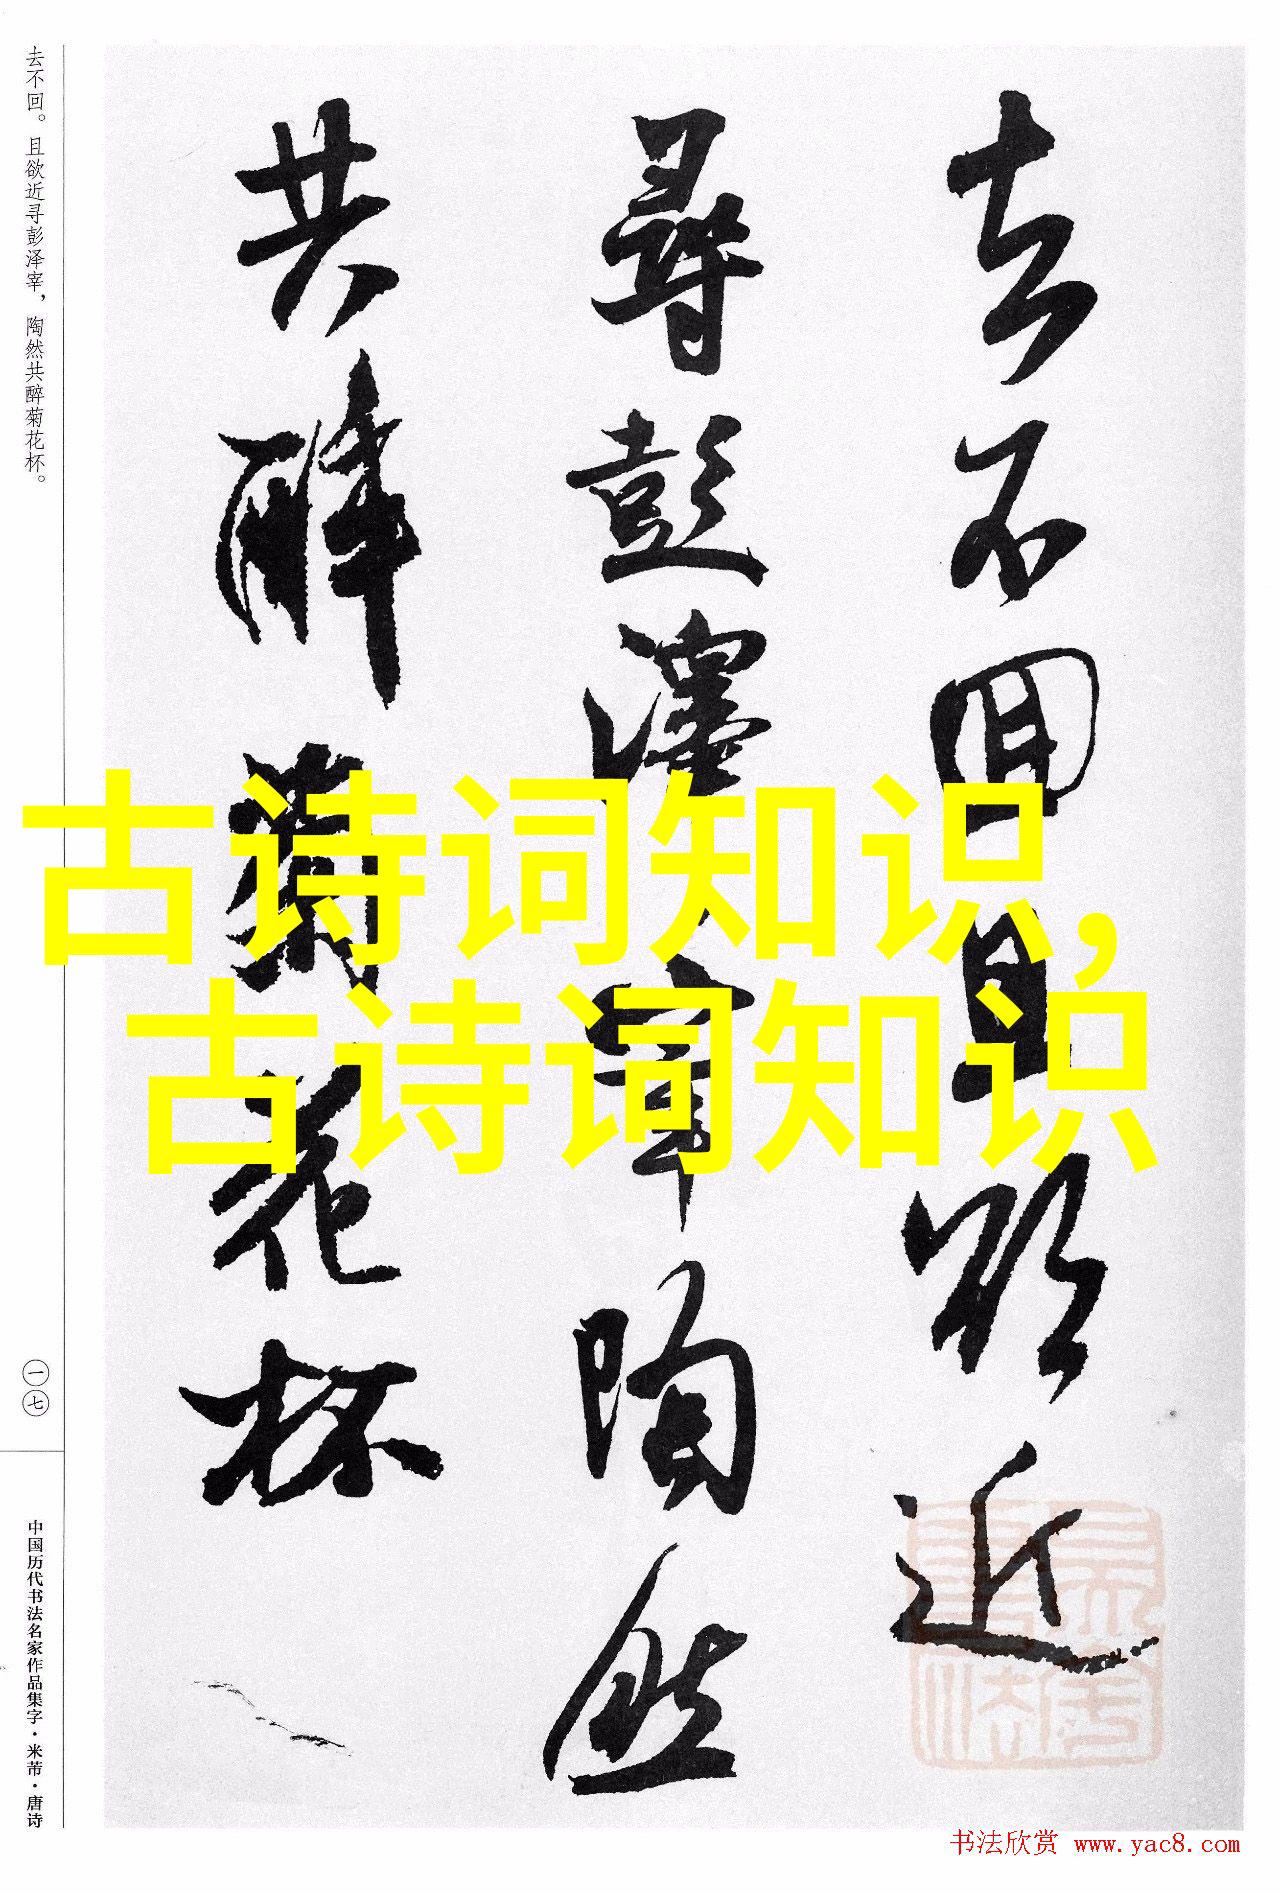 去不回且欲近
寻彭泽宰陶然
共醉菊花杯
古诗词知识,
古诗词知识
去不回。且欲近寻彭泽宰，陶然共醉菊花杯。
一七
中国历代书法名家作品集字·米芾·唐诗
书法欣赏 www.yac8.com